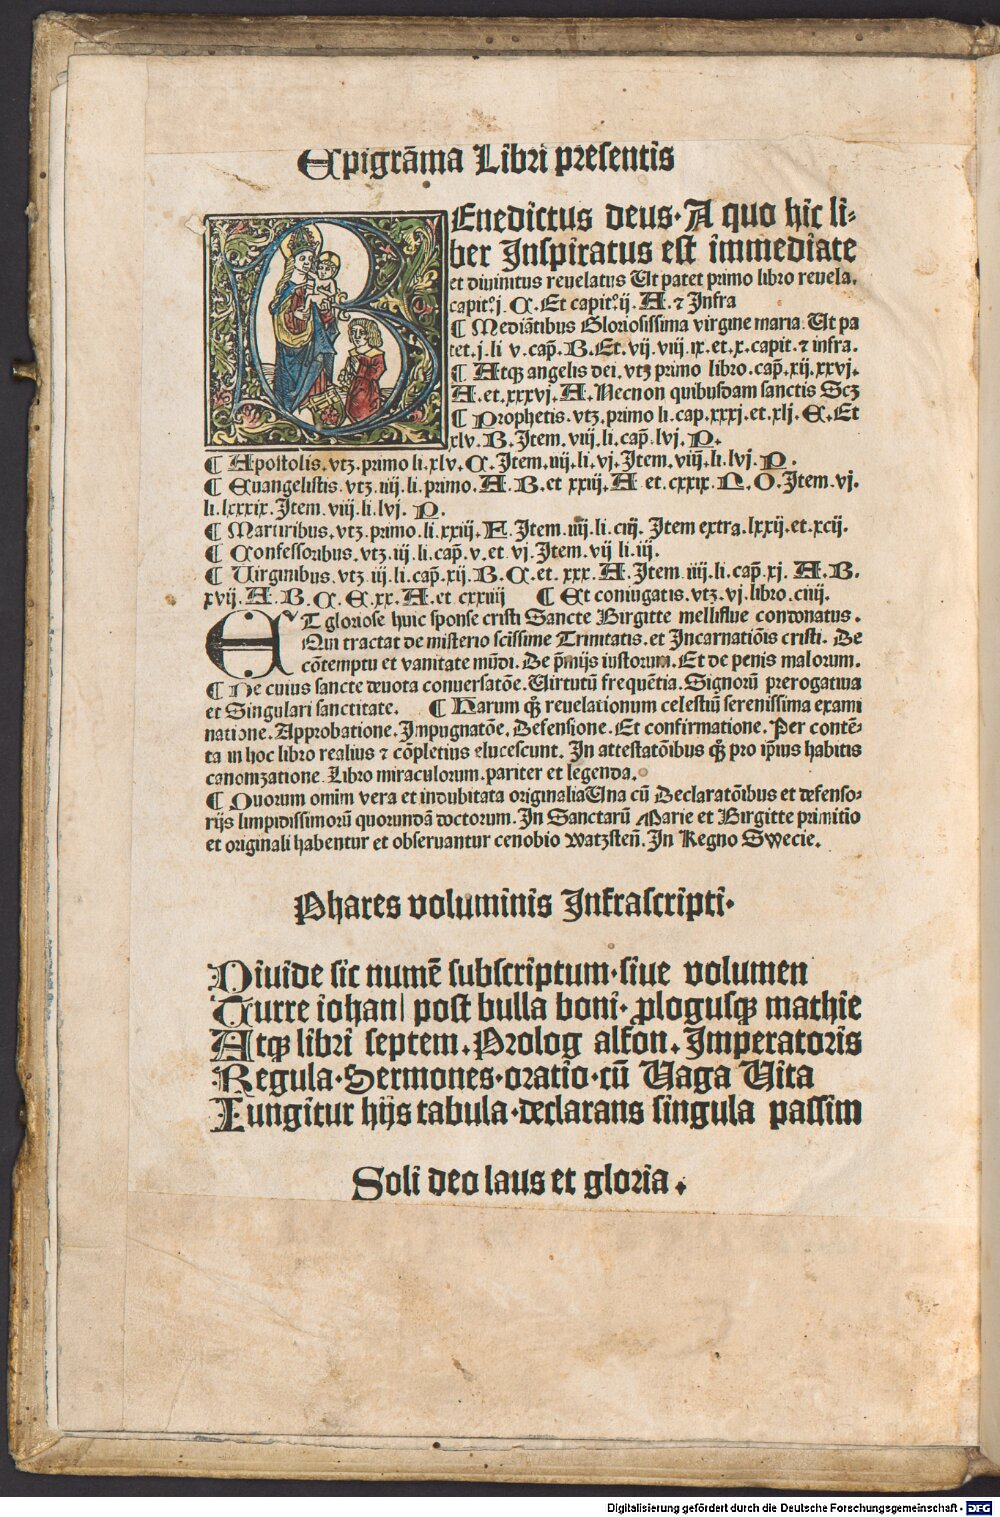 Epigrāma Libri presentis
BEnedictus deus. A quo hic li-
ber Inspiratus est immediate
et diuinitus reuelatus Ut patet primo libro reuela.
capitᵒ j. C. Et capitᵒ ij. A. ⁊ Infra
¶ Mediātibus Gloriosissima virgine maria. Ut pa
tet. j. li v. cap̄. B. Et. vij viij ix. et. x. capit. ⁊ infra.
¶ Atqꝫ angelis dei. vtꝫ primo libro. cap̄. xij. xxvj.
A. et. xxxvj. A. Necnon quibusdam sanctis Scꝫ
¶ Prophetis. vtꝫ. primo li. cap. xxxj. et. xlj. E. Et
xlv. B. Item. viij. li. cap̄. lvj. P.
¶ Apostolis. vtꝫ. primo li. xlv. C. Item. iiij. li. vj. Item. viij. li. lvj. P.
¶ Euangelistis. vtꝫ. iiij. li. primo. A. B. et xxiij. A et. cxxix. N. O. Item. vj.
li. lxxxix. Item. viij. li. lvj. P.
¶ Martiribus. vtꝫ. primo. li. xxiij. F. Item. iiij. li. ciij. Item extra. lxxij. et. xcij.
¶ Confessoribus. vtꝫ. iij. li. cap̄. v. et. vj. Item. vij li. iij.
¶ Uirginibus. vtꝫ. iij. li. cap̄. xij. B. C. et. xxx. A. Item. iiij. li. cap̄. xj. A. B.
xvij. A. B. C. E. xx. A. et cxxiiij ¶ Et coniugatis. vtꝫ. vj. libro. ciiij.
ET gloriose huic sponse cristi Sancte Birgitte melliflue condonatus.
Qui tractat de misterio scissime Trinitatis. et Incarnatiōis cristi. De
cōtemptu et vanitate mūdi. De p̄mijs iustorum. Et de penis malorum.
¶ Ne cuius sancte deuota conuersatōe. Uirtutū frequētia. Signorū prerogatiua
et Singulari sanctitate. ¶ Harum qꝫ reuelationum celestiū serenissima exami
natione. Approbatione. Impugnatōe. Defensione. Et confirmatione. Per contē-
ta in hoc libro realius ⁊ cōpletius elucescunt. In attestatōibus qꝫ pro ip̄ius habitis
canonizatione. Libro miraculorum. pariter et legenda.
¶ Quorum omīm vera et indubitata originalia Una cū Declaratōibus et defenso-
rijs limpidissimorū quorundā doctorum. In Sanctarū Marie et Birgitte primitio
et originali habentur et obseruantur cenobio watzsten̄. In Regno Swecie.
Phares voluminis Infrascripti.
Diuide sic numē subscriptum. siue volumen
Turre iohan| post bulla boni. plogusqꝫ mathie
Atqꝫ libri septem. Prolog alfon. Imperatoris
Regula. Sermones. oratio. cū Uaga Uita
Iungitur hijs tabula. declarans singula passim
Soli deo laus et gloria.
Digitalisierung gefördert durch die Deutsche Forschungsgemeinschaft - DFG